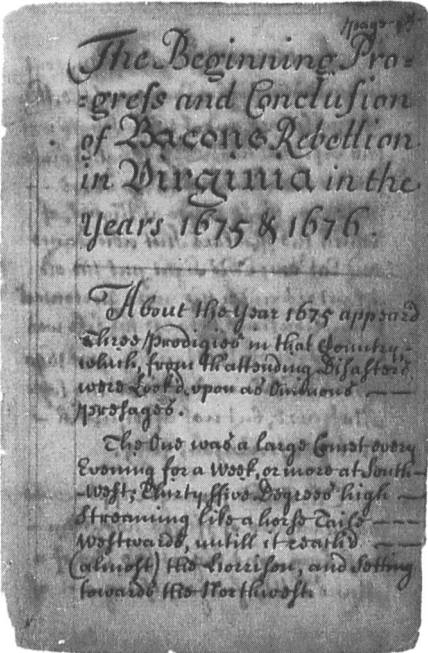 The Beginning Pro=
=gress and Conclusion
of Bacons Rebellion
in Virginia in the
Years 1675 & 1676.
About the year 1675 appear'd
Three prodigies in that Country,
which, from th'attending Disasters
were Look'd upon as Ominous
presages.
The One was a large Comet every
Evening for a Week, or more at South-
-West; Thirty ffive Degrees high
Streaming like a horse Taile
Westwards, untill it reach'd
(almost) the Horrison, and Setting
towards the Northwest.